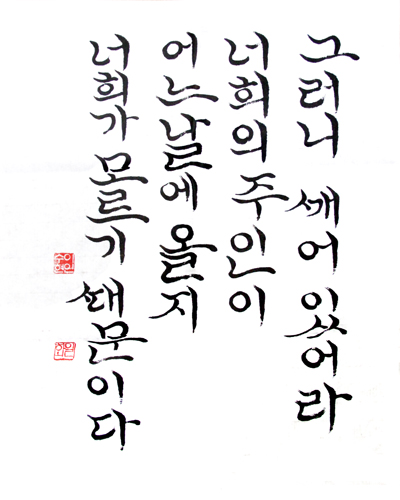 그러니 깨어 있어라
너희의 주인이
어느 날에 올지
너희가 모르기 때문이다